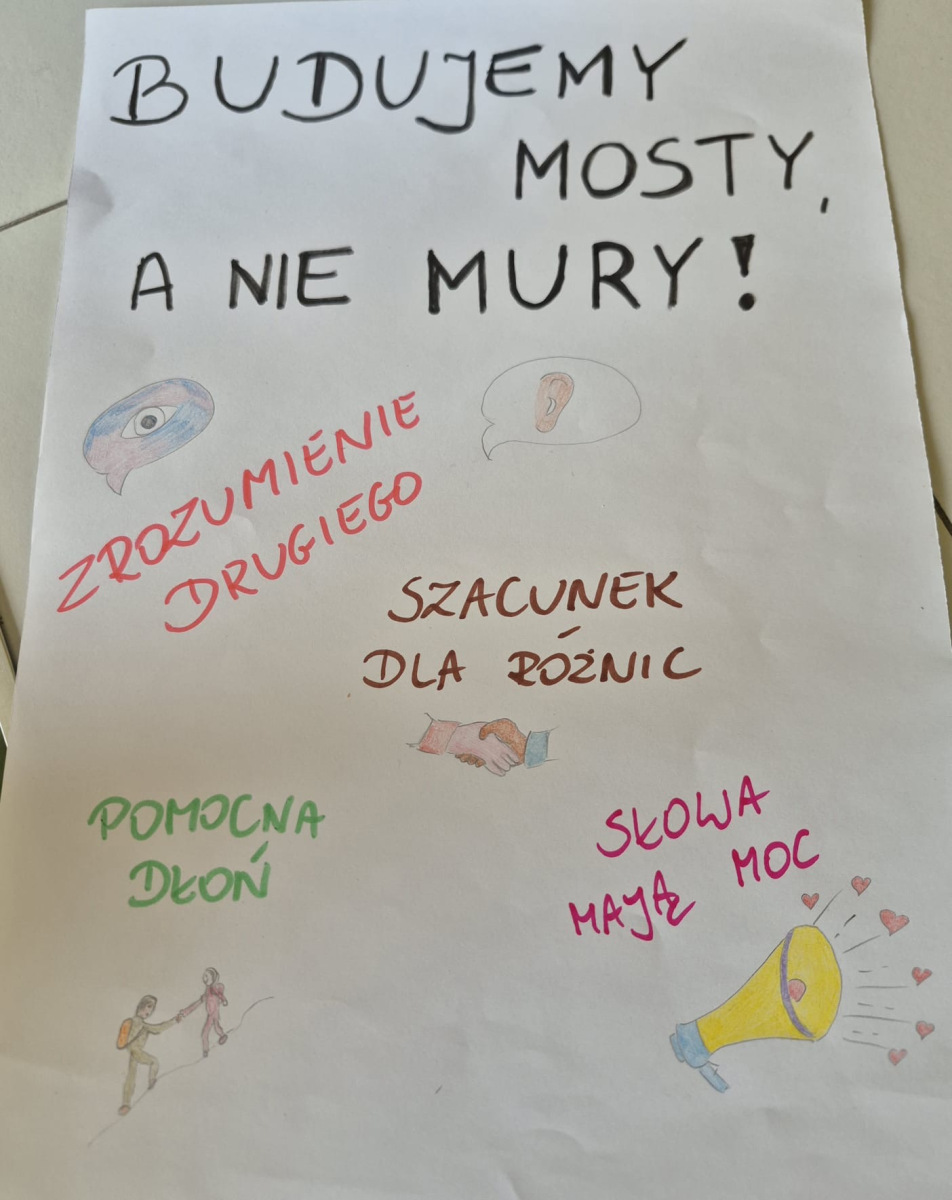 BUDUJEMY
MOSTY,
A NIE MURY!
ZROZUMIENIE
DRUGIEGO
SZACUNEK
DLA RÓŻNIC
POMOCNA
DŁOŃ
SŁOWA
MAJĄ MOC